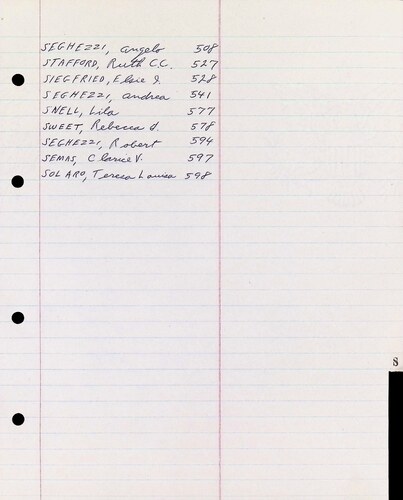 SEGHEZZI, Angelo 508
STAFFORD, Ruth C.C. 527
SIEGFRIED, Elsie J. 528
SEGHEZZI, Andrea 541
SNELL, Lila 577
SWEET, Rebecca J. 578
SEGHEZZI, Robert 594
SEMAS, Clarice V. 597
SOLARO, Teresa Louisa 598
S